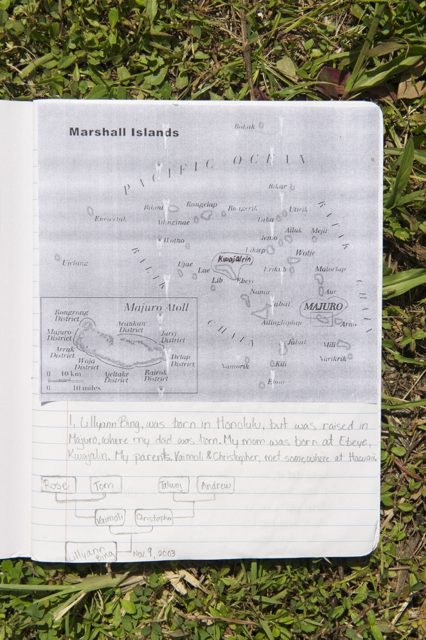 Marshall Islands
Bokak
PACIFIC OCEAN
Bikar
Enewetak
Bikini
Rongelap
Rongerik
Utirik
Ailinginae
Taka
Ailuk
Mejit
Jemo
Wotho
Likiep
Wotje
Ujelang
Kwajalein
Ujae
Lae
Erikub
Maloelap
Lib
Ebeye
Aur
Namu
Jabat
MAJURO
Ailinglaplap
Arno
RATAK
CHAIN
RALIK
CHAIN
Jaluit
Mili
Namorik
Kili
Narikrik
Ebon
Majuro Atoll
Rongrong
District
Majuro
District
Arrak
District
Woja
District
Ajeltake
District
Rairok
District
Delap
District
Jarej
District
District
0 10 km
0 10 miles
I, Lillyann Bing, was born in Honolulu, but was raised in
Majuro, where my dad was born. My mom was born at Ebeye,
Kwajalin. My parents, Vaimoli & Christopher, met somewhere at Hawaii.
Rose Tom Andrew
Vaimoli Christopher
Lillyann
Bing Nov. 9, 2003